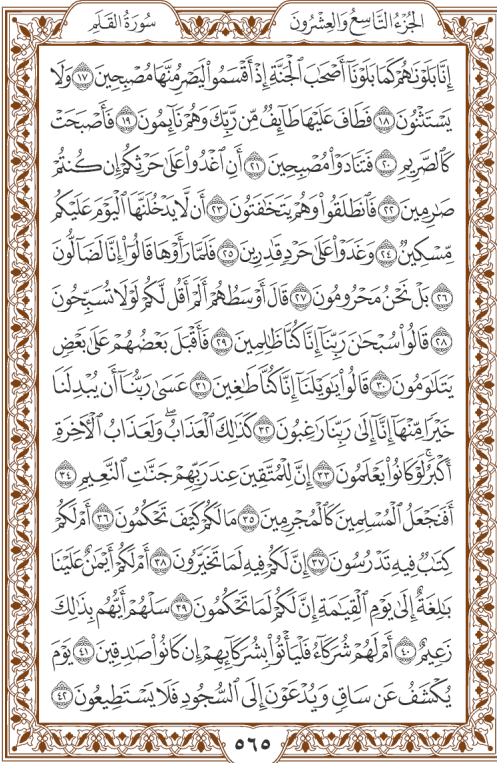 الجُزْءُ التَّاسِعُ وَالعِشْرُونَ
سُورَةُ القَلَمِ
إِنَّا بَلَوْنَٰهُمْ كَمَا بَلَوْنَآ أَصْحَٰبَ ٱلْجَنَّةِ إِذْ أَقْسَمُوا۟ لَيَصْرِمُنَّهَا مُصْبِحِينَ ١٧ وَلَا
يَسْتَثْنُونَ ١٨ فَطَافَ عَلَيْهَا طَآئِفٌ مِّن رَّبِّكَ وَهُمْ نَآئِمُونَ ١٩ فَأَصْبَحَتْ
كَٱلصَّرِيمِ ٢٠ فَتَنَادَوْا۟ مُصْبِحِينَ ٢١ أَنِ ٱغْدُوا۟ عَلَىٰ حَرْثِكُمْ إِن كُنتُمْ
صَٰرِمِينَ ٢٢ فَٱنطَلَقُوا۟ وَهُمْ يَتَخَٰفَتُونَ ٢٣ أَن لَّا يَدْخُلَنَّهَا ٱلْيَوْمَ عَلَيْكُم
مِّسْكِينٌ ٢٤ وَغَدَوْا۟ عَلَىٰ حَرْدٍ قَٰدِرِينَ ٢٥ فَلَمَّا رَأَوْهَا قَالُوٓا۟ إِنَّا لَضَآلُّونَ
٢٦ بَلْ نَحْنُ مَحْرُومُونَ ٢٧ قَالَ أَوْسَطُهُمْ أَلَمْ أَقُل لَّكُمْ لَوْلَا تُسَبِّحُونَ
٢٨ قَالُوا۟ سُبْحَٰنَ رَبِّنَآ إِنَّا كُنَّا ظَٰلِمِينَ ٢٩ فَأَقْبَلَ بَعْضُهُمْ عَلَىٰ بَعْضٍ
يَتَلَٰوَمُونَ ٣٠ قَالُوا۟ يَٰوَيْلَنَآ إِنَّا كُنَّا طَٰغِينَ ٣١ عَسَىٰ رَبُّنَآ أَن يُبْدِلَنَا
خَيْرًا مِّنْهَآ إِنَّآ إِلَىٰ رَبِّنَا رَٰغِبُونَ ٣٢ كَذَٰلِكَ ٱلْعَذَابُ ۖ وَلَعَذَابُ ٱلْءَاخِرَةِ
أَكْبَرُ ۚ لَوْ كَانُوا۟ يَعْلَمُونَ ٣٣ إِنَّ لِلْمُتَّقِينَ عِندَ رَبِّهِمْ جَنَّٰتِ ٱلنَّعِيمِ ٣٤
أَفَنَجْعَلُ ٱلْمُسْلِمِينَ كَٱلْمُجْرِمِينَ ٣٥ مَا لَكُمْ كَيْفَ تَحْكُمُونَ ٣٦ أَمْ لَكُمْ
كِتَٰبٌ فِيهِ تَدْرُسُونَ ٣٧ إِنَّ لَكُمْ فِيهِ لَمَا تَخَيَّرُونَ ٣٨ أَمْ لَكُمْ أَيْمَٰنٌ عَلَيْنَا
بَٰلِغَةٌ إِلَىٰ يَوْمِ ٱلْقِيَٰمَةِ إِنَّ لَكُمْ لَمَا تَحْكُمُونَ ٣٩ سَلْهُمْ أَيُّهُم بِذَٰلِكَ
زَعِيمٌ ٤٠ أَمْ لَهُمْ شُرَكَآءُ فَلْيَأْتُوا۟ بِشُرَكَآئِهِمْ إِن كَانُوا۟ صَٰدِقِينَ ٤١ يَوْمَ
يُكْشَفُ عَن سَاقٍ وَيُدْعَوْنَ إِلَى ٱلسُّجُودِ فَلَا يَسْتَطِيعُونَ ٤٢
٥٦٥